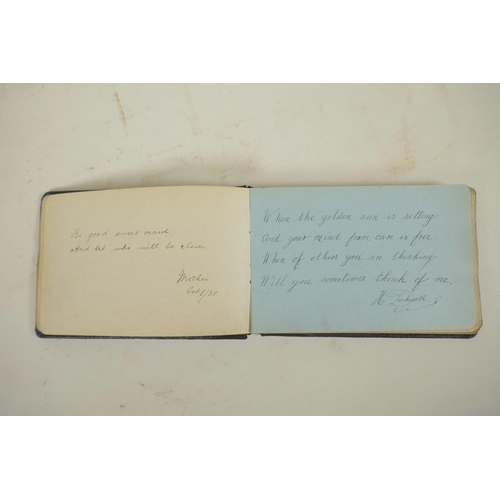 Be good sweet maid
And let who will be clever
Mother
Oct 1/21
When the golden sun is setting
And your mind from care is free
When of others you are thinking
Will you sometimes think of me.
H